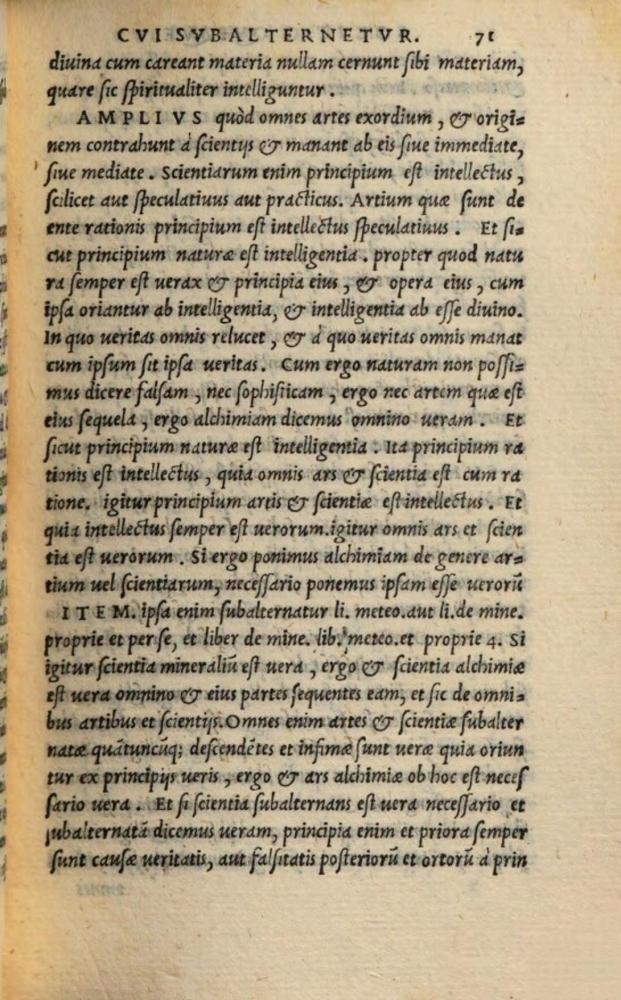 CVI SVBALTERNETVR. 71
diuina cum careant materia nullam cernunt sibi materiam,
quare sic spiritualiter intelliguntur.
AMPLIVS quòd omnes artes exordium, & origi=
nem contrahunt à scientijs & manant ab eis siue immediate,
siue mediate. Scientiarum enim principium est intellectus,
scilicet aut speculatiuus aut practicus. Artium quæ sunt de
ente rationis principium est intellectus speculatiuus. Et si=
cut principium naturæ est intelligentia. propter quod natu
ra semper est uerax & principia eius, & opera eius, cum
ipsa oriantur ab intelligentia, & intelligentia ab esse diuino.
In quo ueritas omnis relucet, & à quo ueritas omnis manat
cum ipsum sit ipsa ueritas. Cum ergo naturam non possi=
mus dicere falsam, nec sophisticam, ergo nec artem quæ est
eius sequela, ergo alchimiam dicemus omnino ueram. Et
sicut principium naturæ est intelligentia. Ita principium ra
tionis est intellectus, quia omnis ars & scientia est cum ra
tione. igitur principium artis & scientiæ est intellectus. Et
quia intellectus semper est uerorum.igitur omnis ars et scien
tia est uerorum. Si ergo ponimus alchimiam de genere ar=
tium uel scientiarum, necessario ponemus ipsam esse uerorũ
ITEM. ipsa enim subalternatur li. meteo.aut li.de mine.
proprie et per se, et liber de mine. lib. meteo.et proprie 4. Si
igitur scientia mineraliũ est uera, ergo & scientia alchimiæ
est uera omnino & eius partes sequentes eam, et sic de omni=
bus artibus et scientijs. Omnes enim artes & scientiæ subalter
natæ quãtuncũq; descendẽtes et infimæ sunt ueræ quia oriun
tur ex principijs ueris, ergo & ars alchimiæ ob hoc est neces
sario uera. Et si scientia subalternans est uera necessario et
subalternatã dicemus ueram, principia enim et priora semper
sunt causæ ueritatis, aut falsitatis posteriorũ et ortorũ à prin